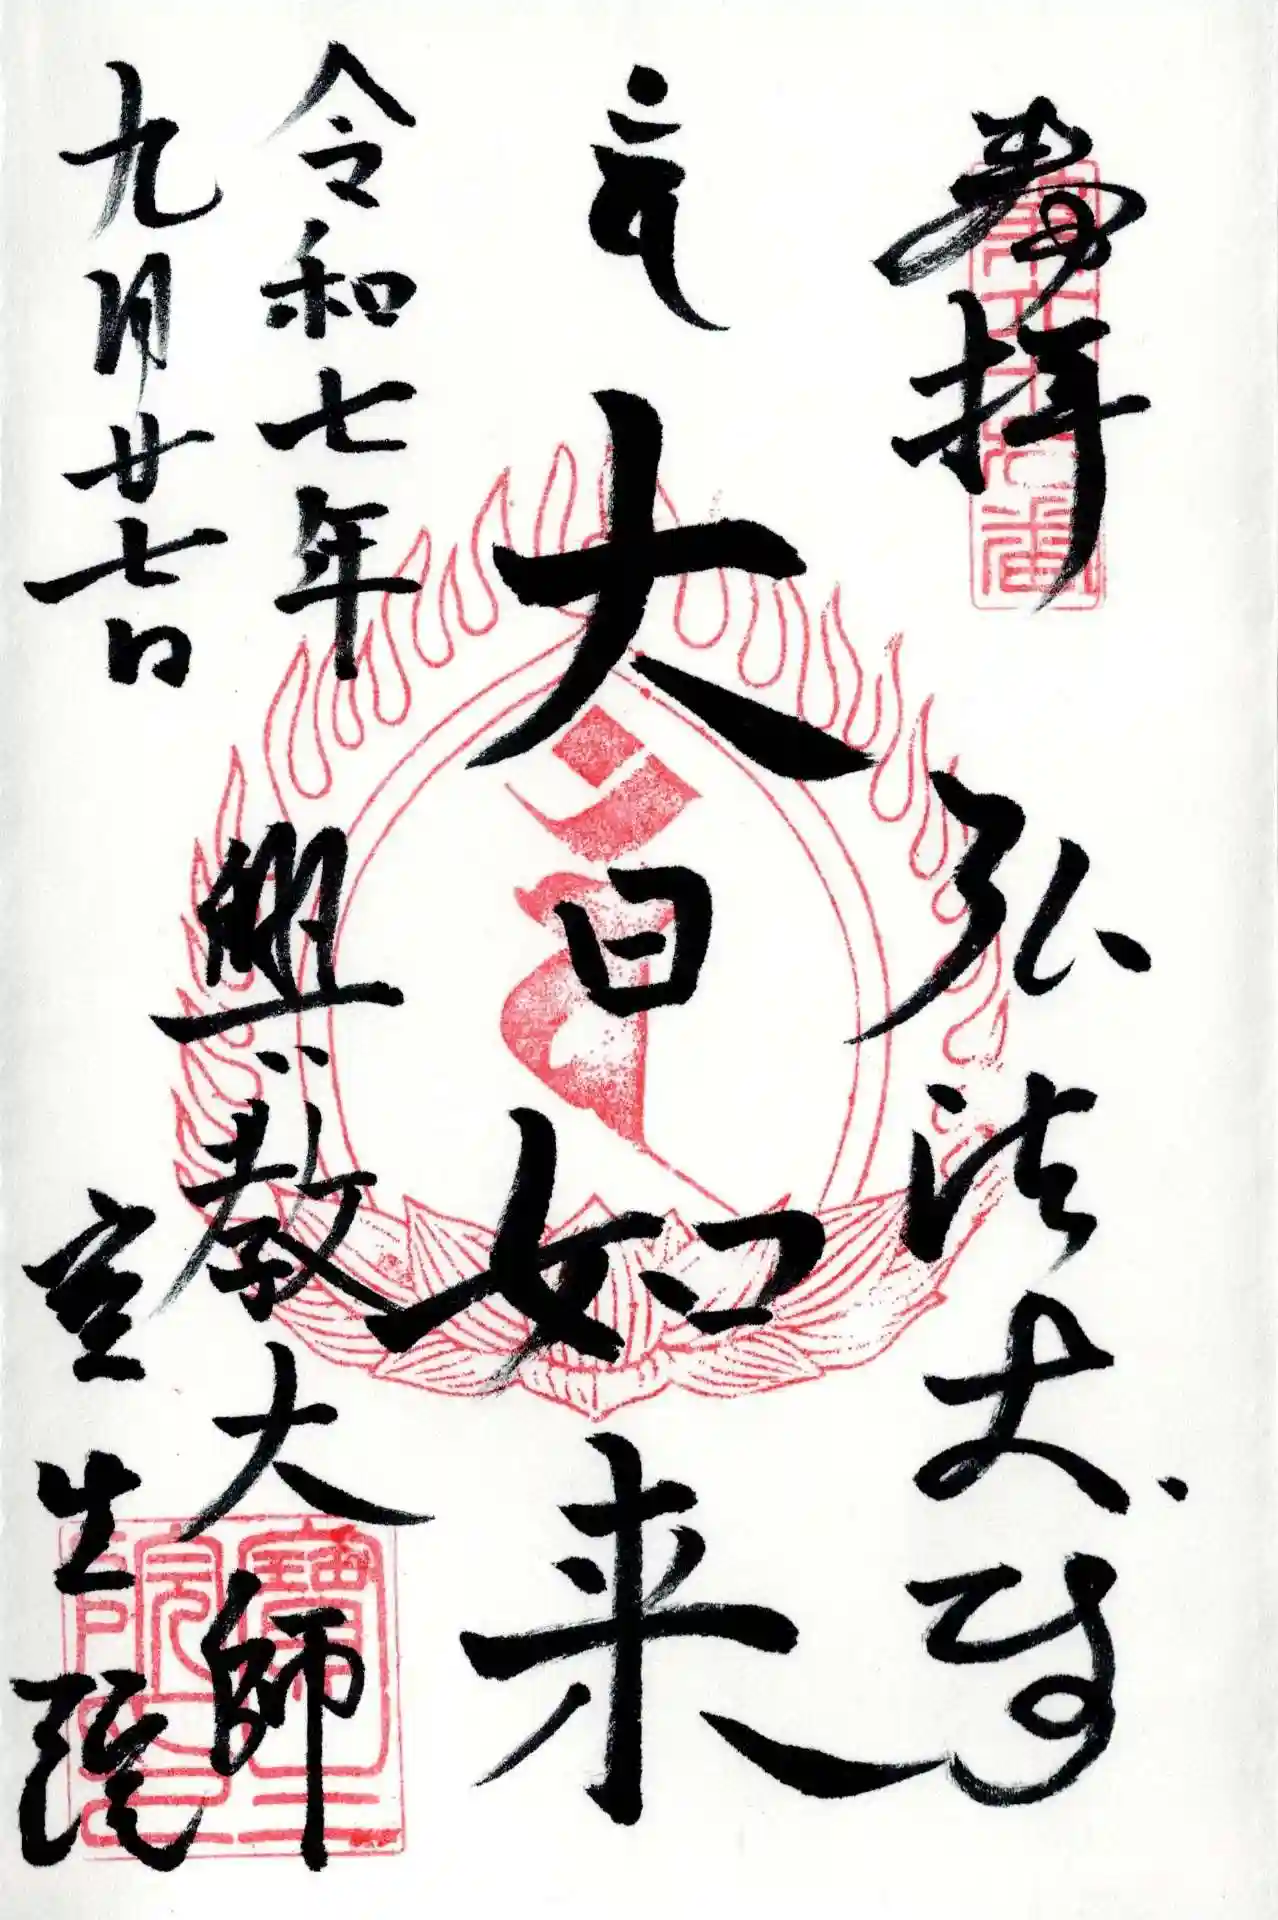 奉拝
弘法大師
大日如来
令和七年
九月廿七日
興教大師
宝生院
寶生院印